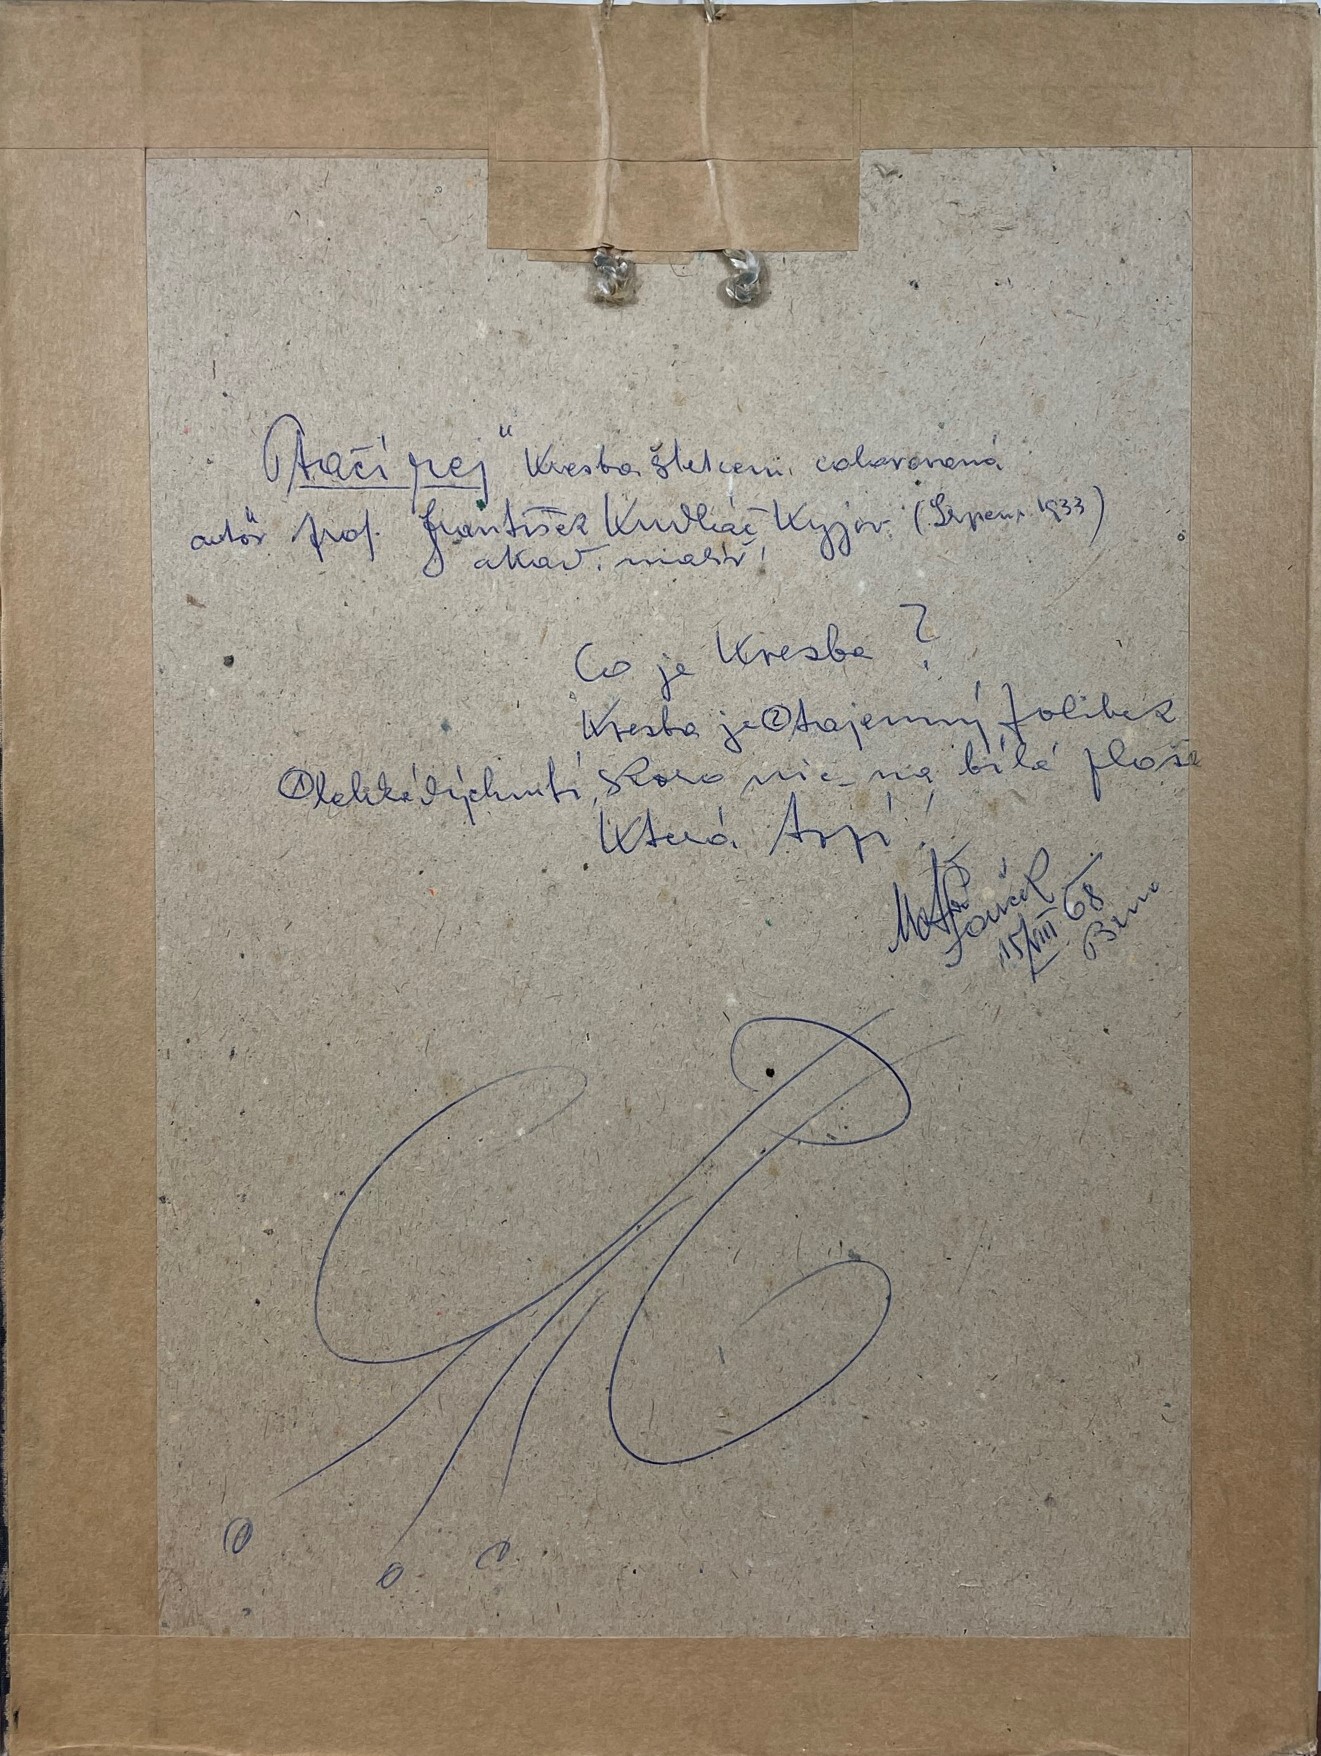 Ptačí rej" Kresba štětcem kolorovaná
autor prof. František Kudláč Kyjov. (Srpen. 1933)
akad. malíř!
Co je Kresba?
Kresba je ② tajemný polibek
① lehké dýchnutí, skoro nic na bílé ploše
Která trpí!
15/VIII 68
Brno